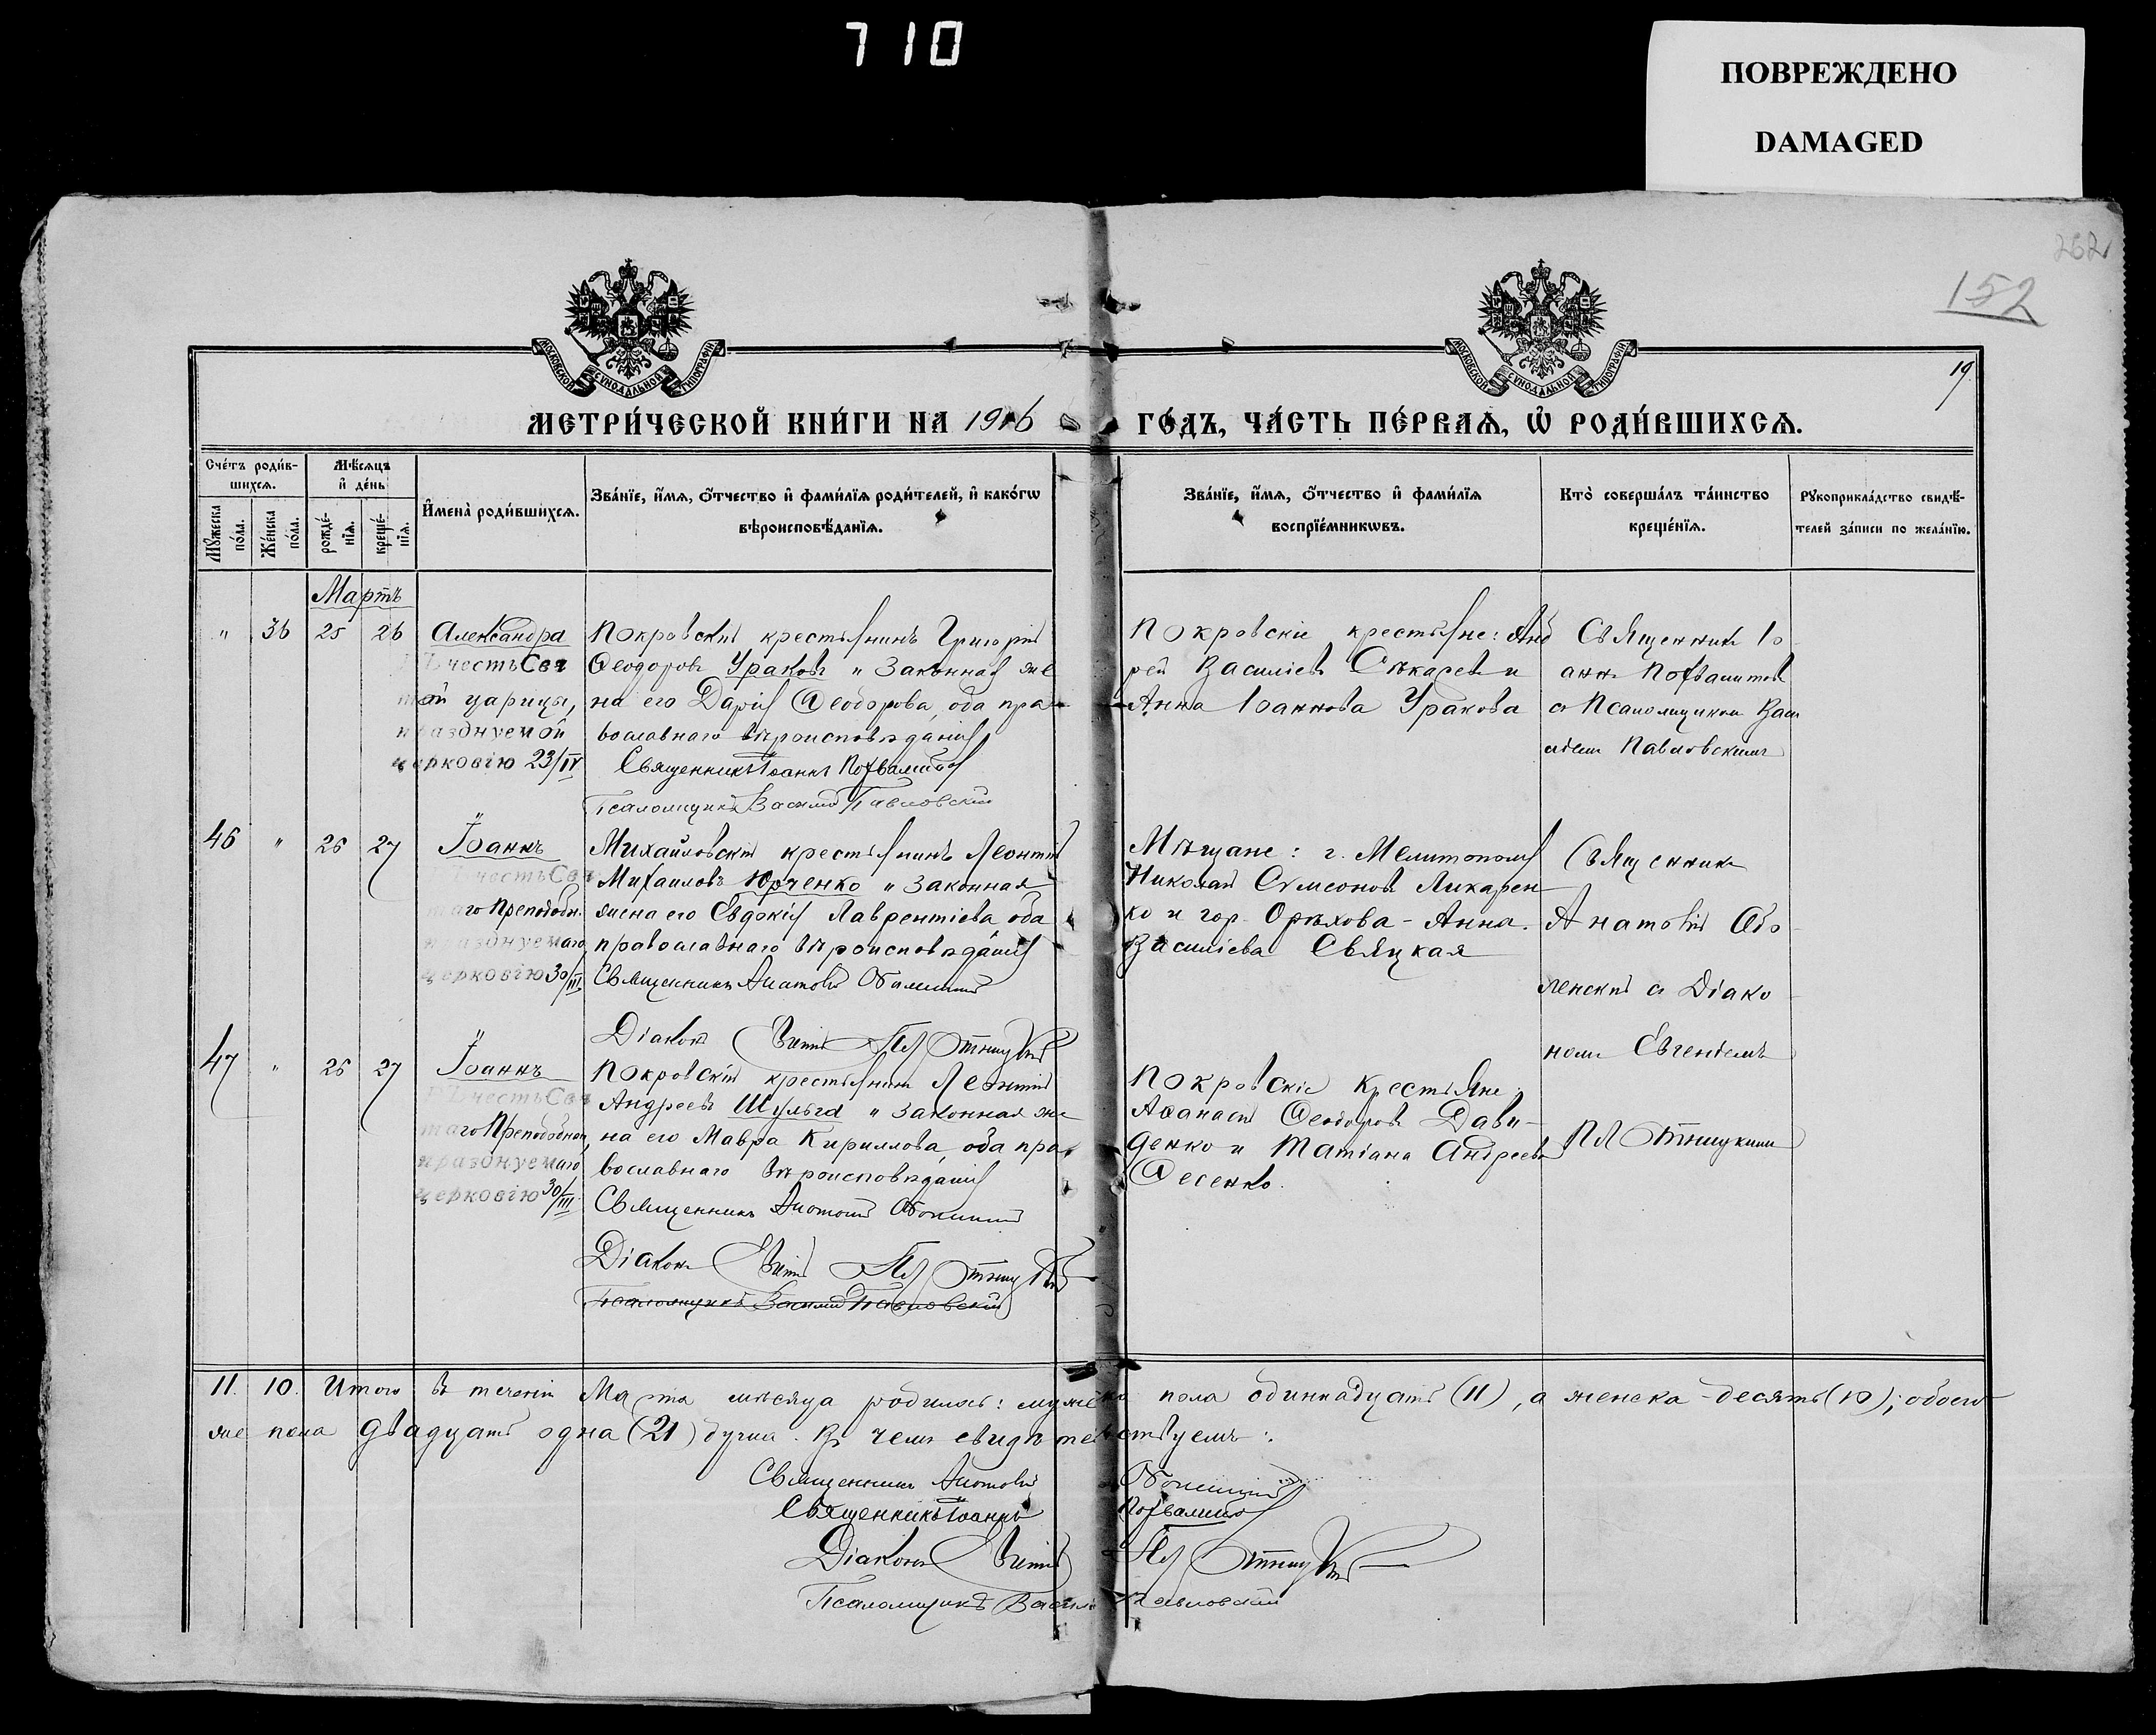 710
ПОВРЕЖДЕНО
DAMAGED
262
152
19
МОСКОВСКОЙ СѴНОДАЛЬНОЙ ТИПОГРАФІИ
МОСКОВСКОЙ СѴНОДАЛЬНОЙ ТИПОГРАФІИ
МЕТРИ́ЧЕСКОЙ КНИ́ГИ НА 1916 ГО́ДЪ, ЧА́СТЬ ПЕ́РВАЯ, Ѡ҆ РОДИ́ВШИХСЯ.
Сче́тъ роди́в-
шихся.
Мꙋжеска по́ла.
Же́нска по́ла.
Мѣ́сяцъ
и҆ де́нь
рожде́-
нїя.
креще́-
нїя.
И҆мена̀ роди́вшихся.
Зва́нїе, и҆́мя, ѻ҆́тчество и҆ фами́лїя роди́телей, и҆ како́гѡ
вѣроисповѣ́данїя.
Зва́нїе, и҆́мя, ѻ҆́тчество и҆ фами́лїя
воспрїе́мникѡвъ.
Кто̀ соверша́лъ та́инство
креще́нїя.
Рꙋкоприкла́дство свидѣ́-
телей за́писи по жела́нїю.
Мартъ
" 36 25 26
Александра
въ честь Свя
той царицы,
празднуемой
церковію 23/IV
Покровскій крестьянинъ Григорій
Ѳеодоровъ Ураковъ и законная же
на его Дарія Ѳеодорова, оба пра
вославнаго вѣроисповѣданія
Священникъ Іоаннъ Похвалитовъ
Псаломщикъ Василій Павловскій
Покровскіе крестьяне: Анд
рей Василіевъ Сѣкаревъ и
Анна Іоаннова Уракова
Священникъ Іо
аннъ Похвалитовъ
съ Псаломщикомъ Васи
ліемъ Павловскимъ
46 " 26 27
Іоаннъ
въ честь Свя
таго Преподобн.
празднуемаго
церковію 30/III
Михайловскій крестьянинъ Леонтій
Михаиловъ Юрченко и законная
жена его Евдокія Лаврентіева, оба
православнаго вѣроисповѣданія
Священникъ Анатолій Оболенскій
Діаконъ Евгеній Плотницкій
Мѣщане: г. Мелитополя
Николай Сѵмеоновъ Лихарен
ко и гор. Орѣхова - Анна
Василіева Свяцкая
Священникъ
Анатолій Обо
ленскій съ Діако
номъ Евгеніемъ
Плотницкимъ
47 " 26 27
Іоаннъ
въ честь Свя
таго Преподобнаго,
празднуемаго
церковію 30/III
Покровскій крестьянинъ Леонтій
Андреевъ Шульга и законная же
на его Мавра Кириллова, оба пра
вославнаго вѣроисповѣданія
Священникъ Анатолій Оболенскій
Діаконъ Евгеній Плотницкій
Псаломщикъ Василій Павловскій
Покровскіе крестьяне:
Аѳанасій Ѳеодоровъ Дави-
денко и Татіана Андреева
Ѳесенко.
11. 10. Итого въ теченіи Марта мѣсяца родилось: мужеска пола одиннадцать (11), а женска - десять (10); обоего
же пола двадцать одна (21) душа. Въ чемъ свидѣтельствуемъ:
Священникъ Анатолій Оболенскій
Священникъ Іоаннъ Похвалитовъ
Діаконъ Евгеній Плотницкій
Псаломщикъ Василій Павловскій